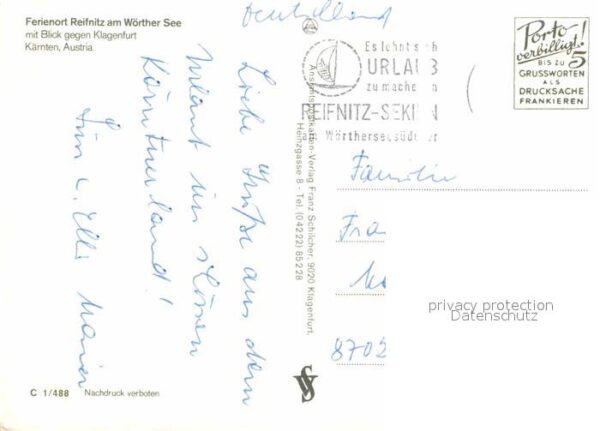 Ferienort Reifnitz am Wörther See
mit Blick gegen Klagenfurt
Kärnten, Austria
Liebe Grüße aus dem
Urlaub im schönen
Kärntnerland!
C 1/488 Nachdruck verboten
Ansichtskarten-Verlag Franz Schilcher, 9020 Klagenfurt,
Heinzgasse 8 - Tel. (04222) 85228
Deutschland
Es lohnt sich
URLAUB
zu machen in
REIFNITZ-SEKIRN
Wörthersee
Porto
verbilligt!
BIS ZU 5
GRUSSWORTEN
ALS
DRUCKSACHE
FRANKIEREN
Familie
8702
privacy protection
Datenschutz